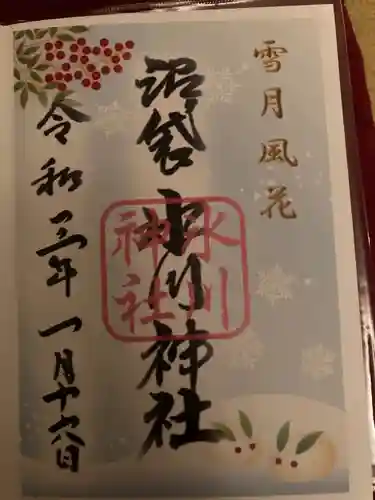 雪月風花
沼袋 氷川神社
氷川
神社
令和三年 一月十六日